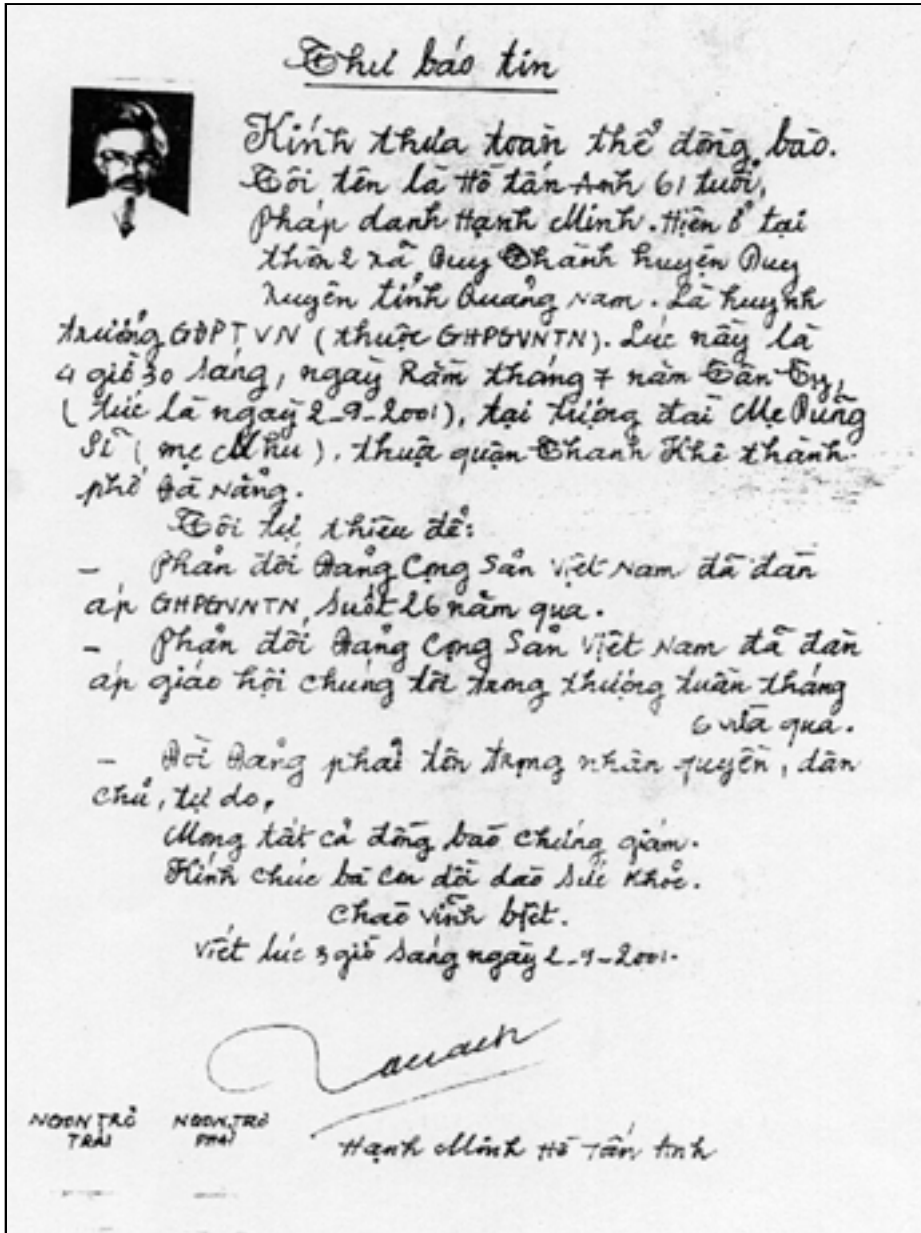 Thư báo tin
Kính thưa toàn thể đồng bào.
Tôi tên là Hồ tấn Anh 61 tuổi,
Pháp danh Hạnh Minh. Hiện ở tại
thôn 2 xã Duy Thành huyện Duy
Xuyên tỉnh Quảng Nam. Là huynh
trưởng GĐPTVN (thuộc GHPGVNTN). Lúc nầy là
4 giờ 30 sáng, ngày Rằm tháng 7 năm Tân Tỵ,
(tức là ngày 2-9-2001), tại tượng đài Mẹ Dũng
Sĩ (mẹ Nhu). thuộc quận Thanh Khê thành
phố Đà Nẵng.
Tôi tự thiêu để:
- Phản đối Đảng Cọng Sản Việt Nam đã đàn
áp GHPGVNTN, suốt 26 năm qua.
- Phản đối Đảng Cọng Sản Việt Nam đã đàn
áp giáo hội chúng tôi trong thượng tuần tháng
6 vừa qua.
- Đòi Đảng phải tôn trọng nhân quyền, dân
chủ, tự do,
Mong tất cả đồng bào chứng giám.
Kính chúc bà con dồi dào sức khỏe.
Chào vĩnh biệt.
Viết lúc 3 giờ sáng ngày 2-9-2001.
NGÓN TRỎ
TRÁI
NGÓN TRỎ
PHẢI
Hạnh Minh Hồ Tấn Anh